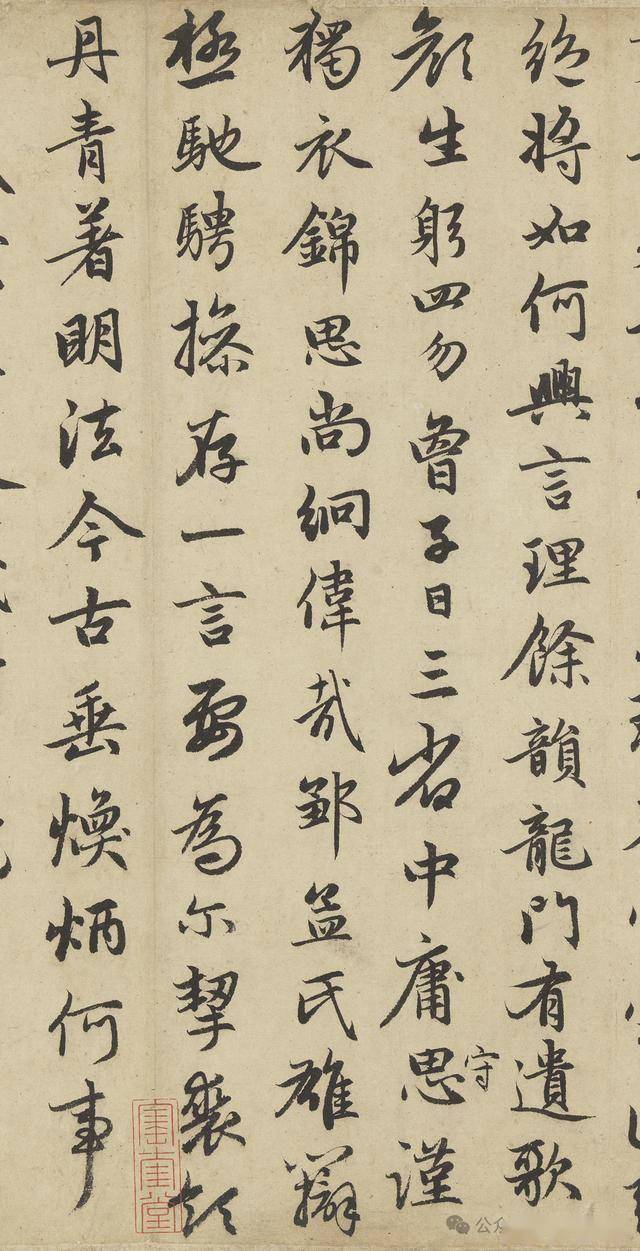 絶將如何興言理餘韻龍門有遺歌
顔生躬四勿曾子日三省中庸思謹
守
獨衣錦思尚絅偉哉鄒孟氏雄辯
極馳騁操存一言要為尓挈裘領
丹青著明法今古垂煥炳何事
公众